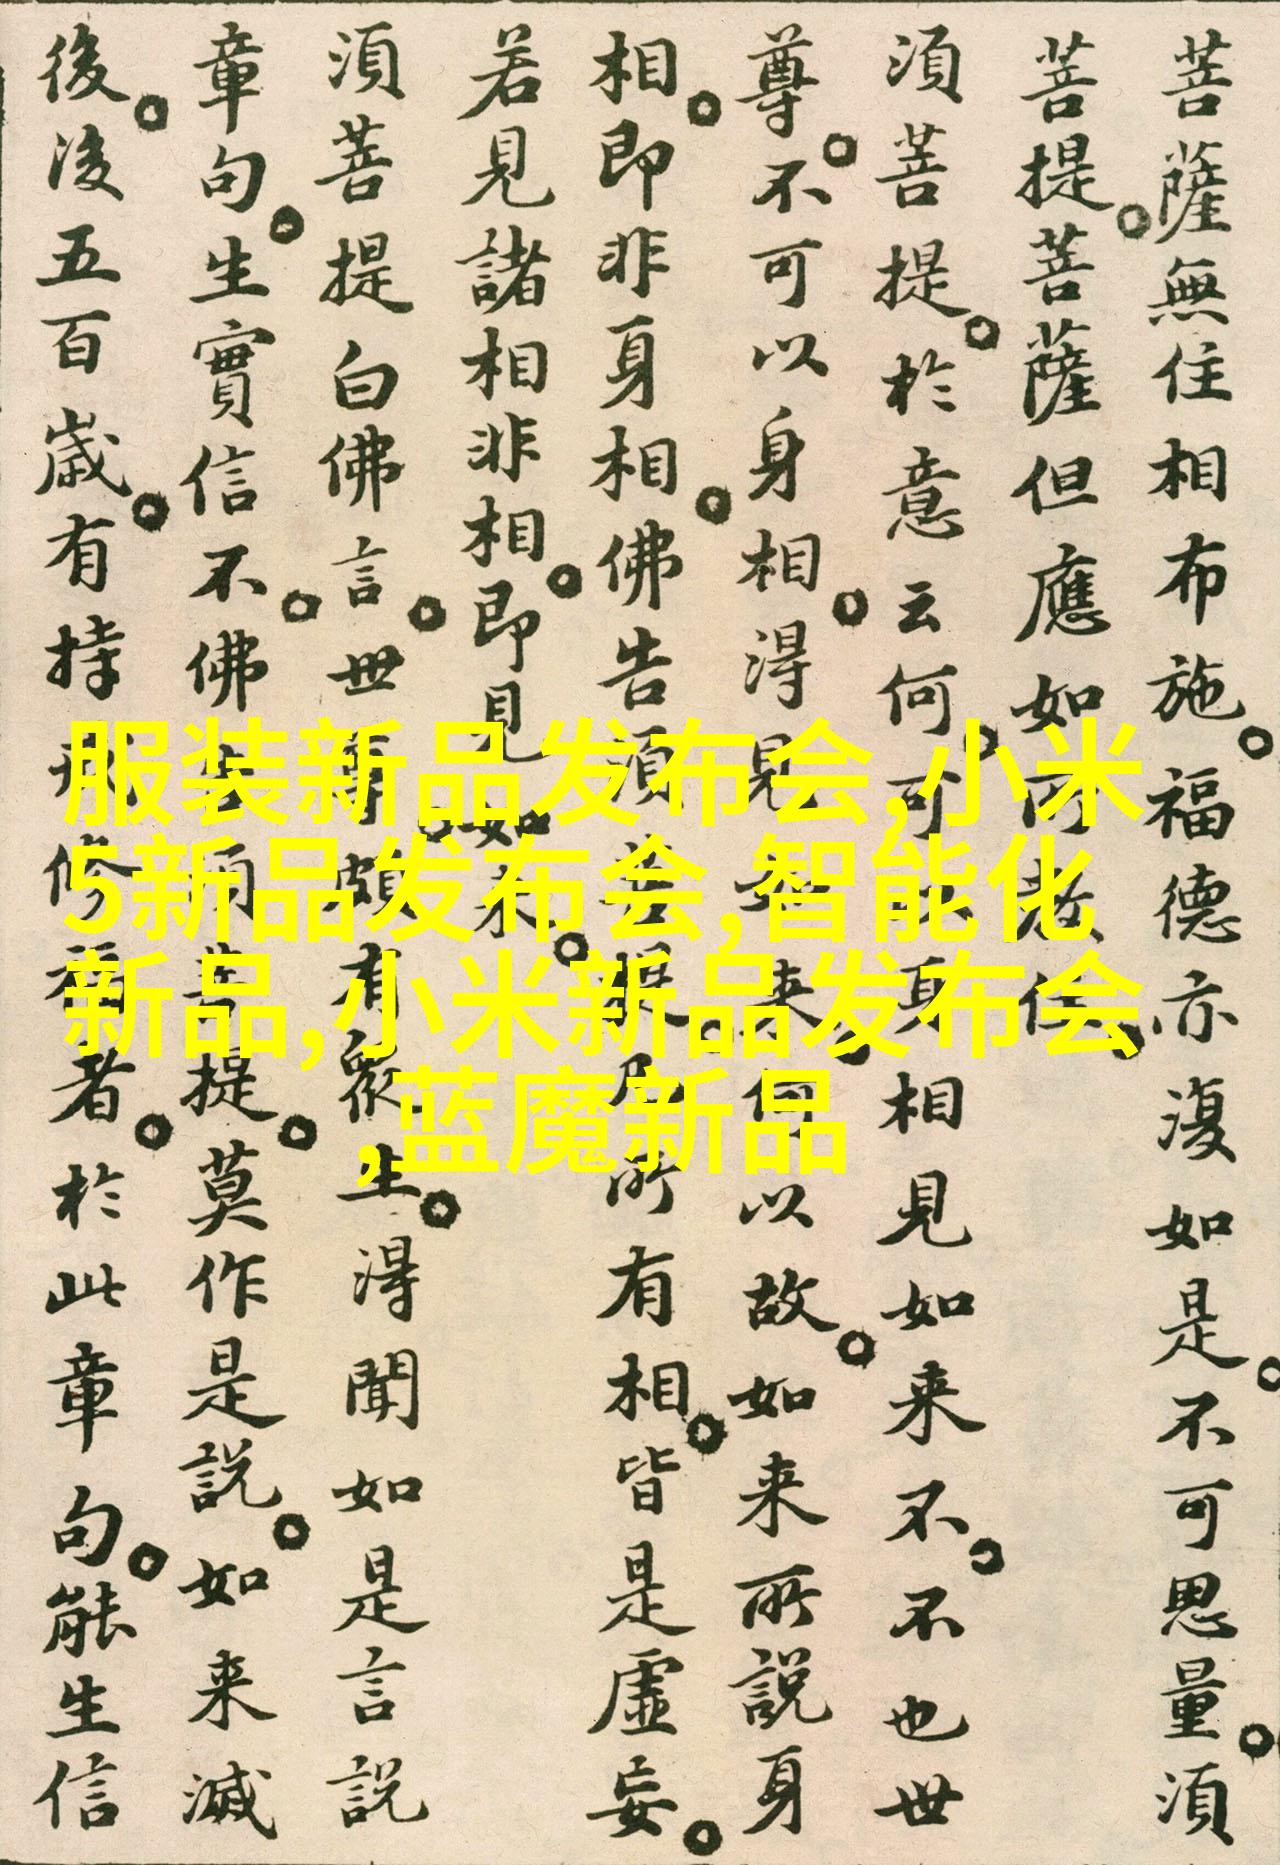 菩薩無住相布施。福德亦復如是。不可思量。須
菩提。菩薩但應如所教住。
須菩提。於意云何。可以身相見如来不。不也世
尊。不可以身相。得見如来。何以故。如来所說身
相。即非身相。佛告須菩提。凡所有相。皆是虛妄。
若見諸相非相。即見如来。
須菩提白佛言。世尊。頗有衆生。得聞如是言說
章句。生實信不。佛告須菩提。莫作是說。如来滅
後。後五百歲。有持戒修福者。於此章句。能生信
服装新品发布会,小米
5新品发布会,智能化
新品,小米新品发布会
,蓝魔新品